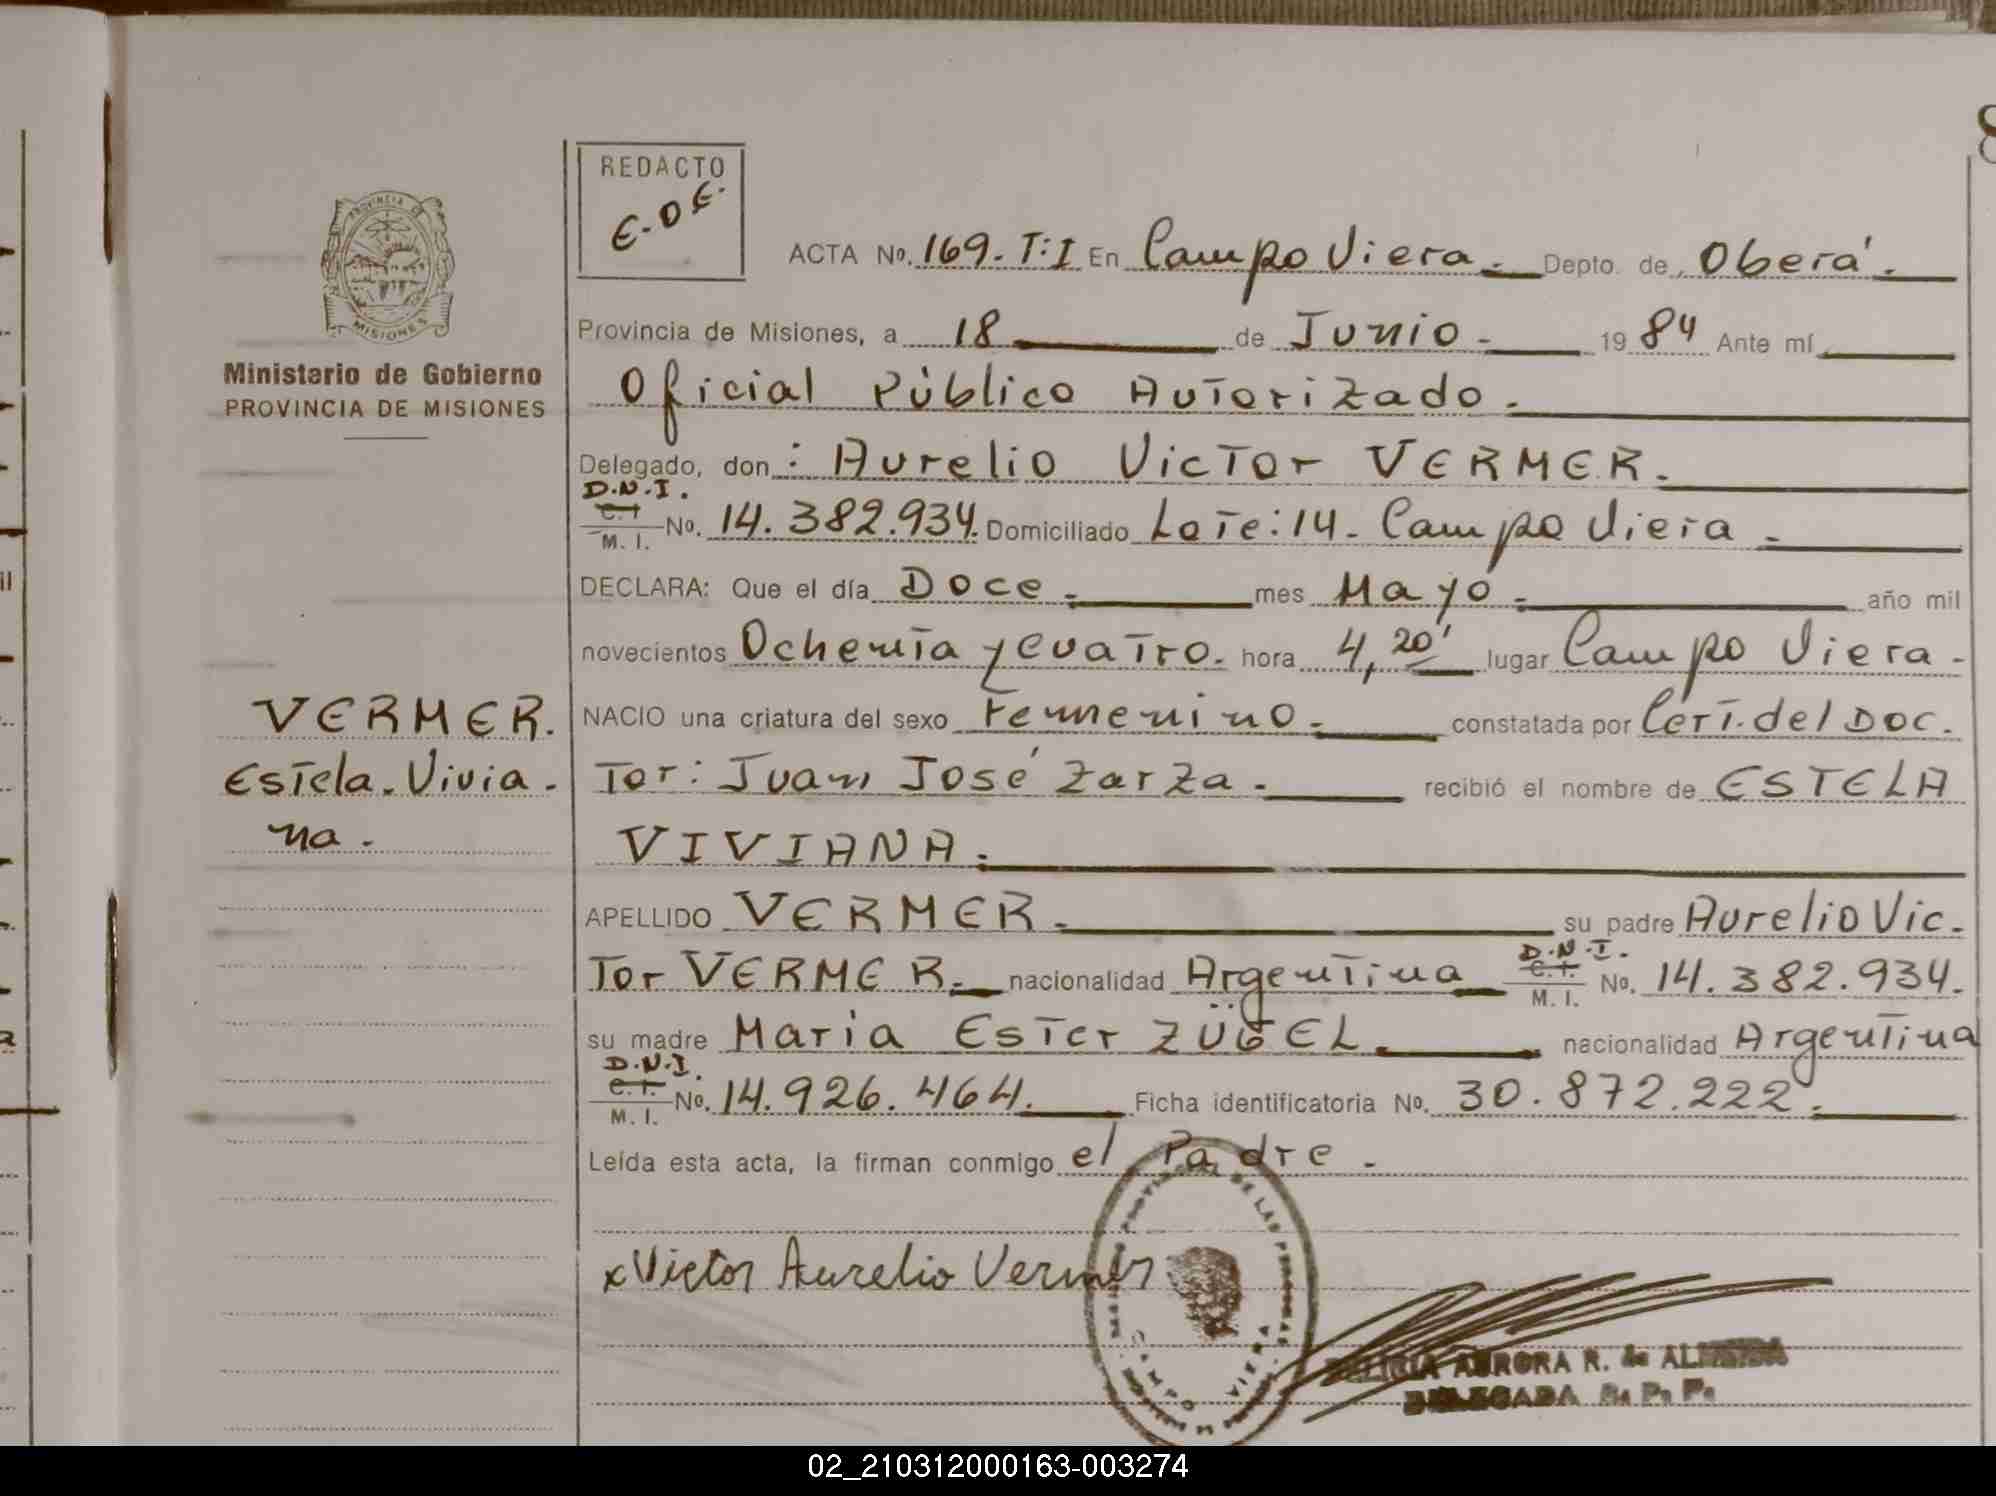 REDACTO
E.D.E.
PROVINCIA DE
MISIONES
Ministerio de Gobierno
PROVINCIA DE MISIONES
ACTA No. 169. T:I En Campo Viera. Depto. de Oberá.
Provincia de Misiones, a 18 de Junio. 1984 Ante mí
Oficial Público Autorizado.
Delegado, don: Aurelio Victor VERMER.
D.N.I.
C.I. M. I. No. 14.382.934. Domiciliado Lote: 14. Campo Viera
DECLARA: Que el día Doce mes Mayo año mil
novecientos Ochenta y cuatro. hora 4,20' lugar Campo Viera.
NACIO una criatura del sexo Femenino. constatada por Cert. del Doc.
tor: Juan José Zarza. recibió el nombre de ESTELA
VIVIANA.
APELLIDO VERMER. su padre Aurelio Vic.
tor VERMER. nacionalidad Argentina D.N.I. C.I. M. I. No. 14.382.934.
su madre Maria Ester ZÜGEL. nacionalidad Argentina
D.N.I.
C.I. M. I. No. 14.926.464. Ficha identificatoria No. 30.872.222.
Leída esta acta, la firman conmigo el Padre.
VERMER.
Estela. Vivia.
na.
x Victor Aurelio Vermer
DE LAS
CAMPO VIERA
AURORA R. de
DELEGADA R. P. P.
02_210312000163-003274